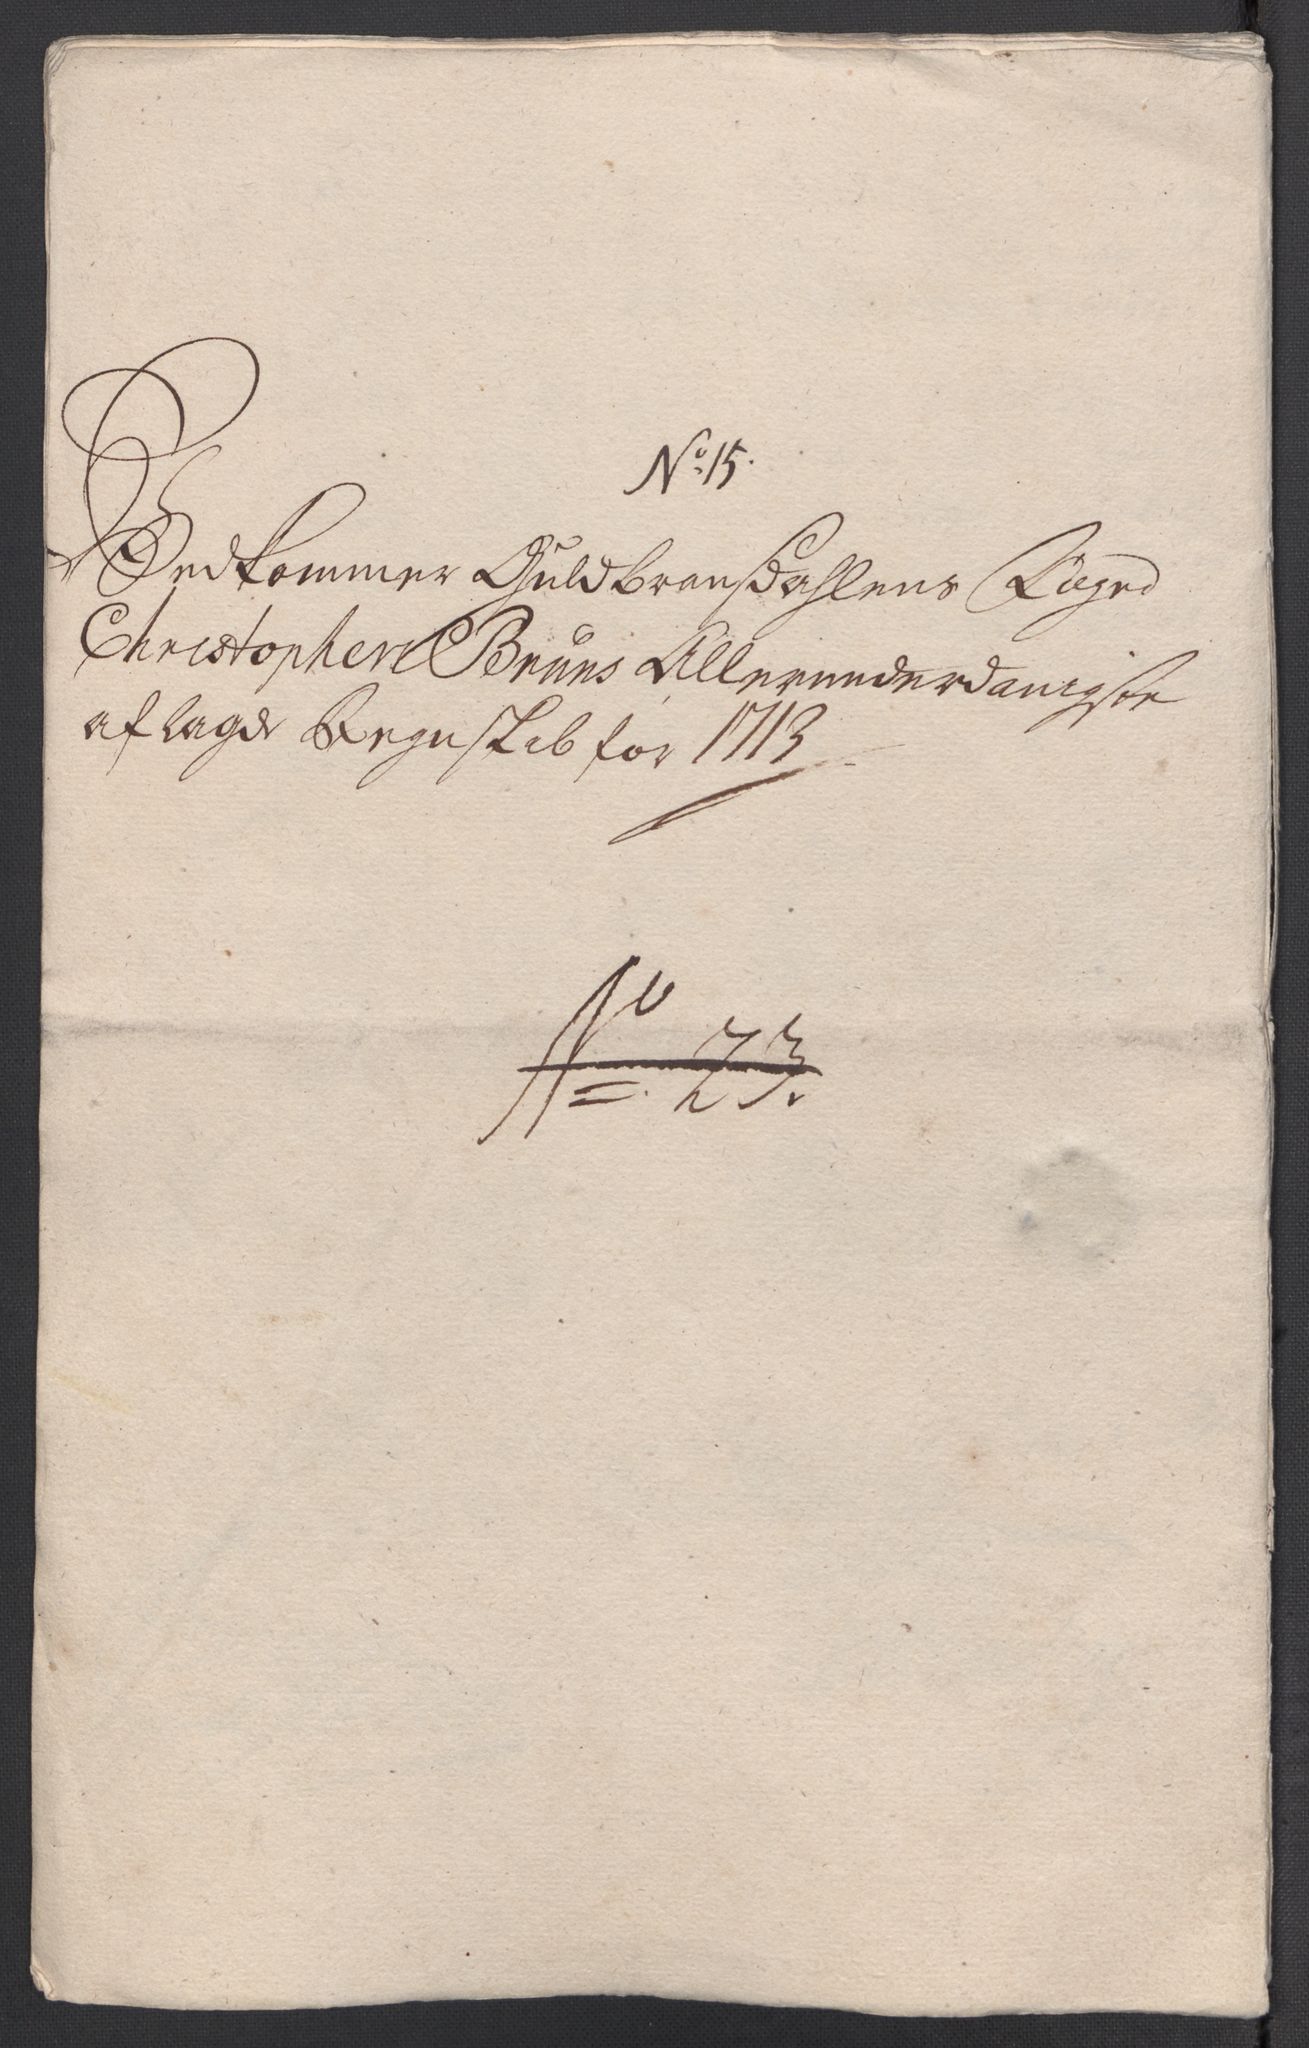 No. 15.
Vedkommer Guldbransdahlens Foged
Christopher Bruns Allerunderdanigste
aflagde Regnskab for 1713
No. 23.